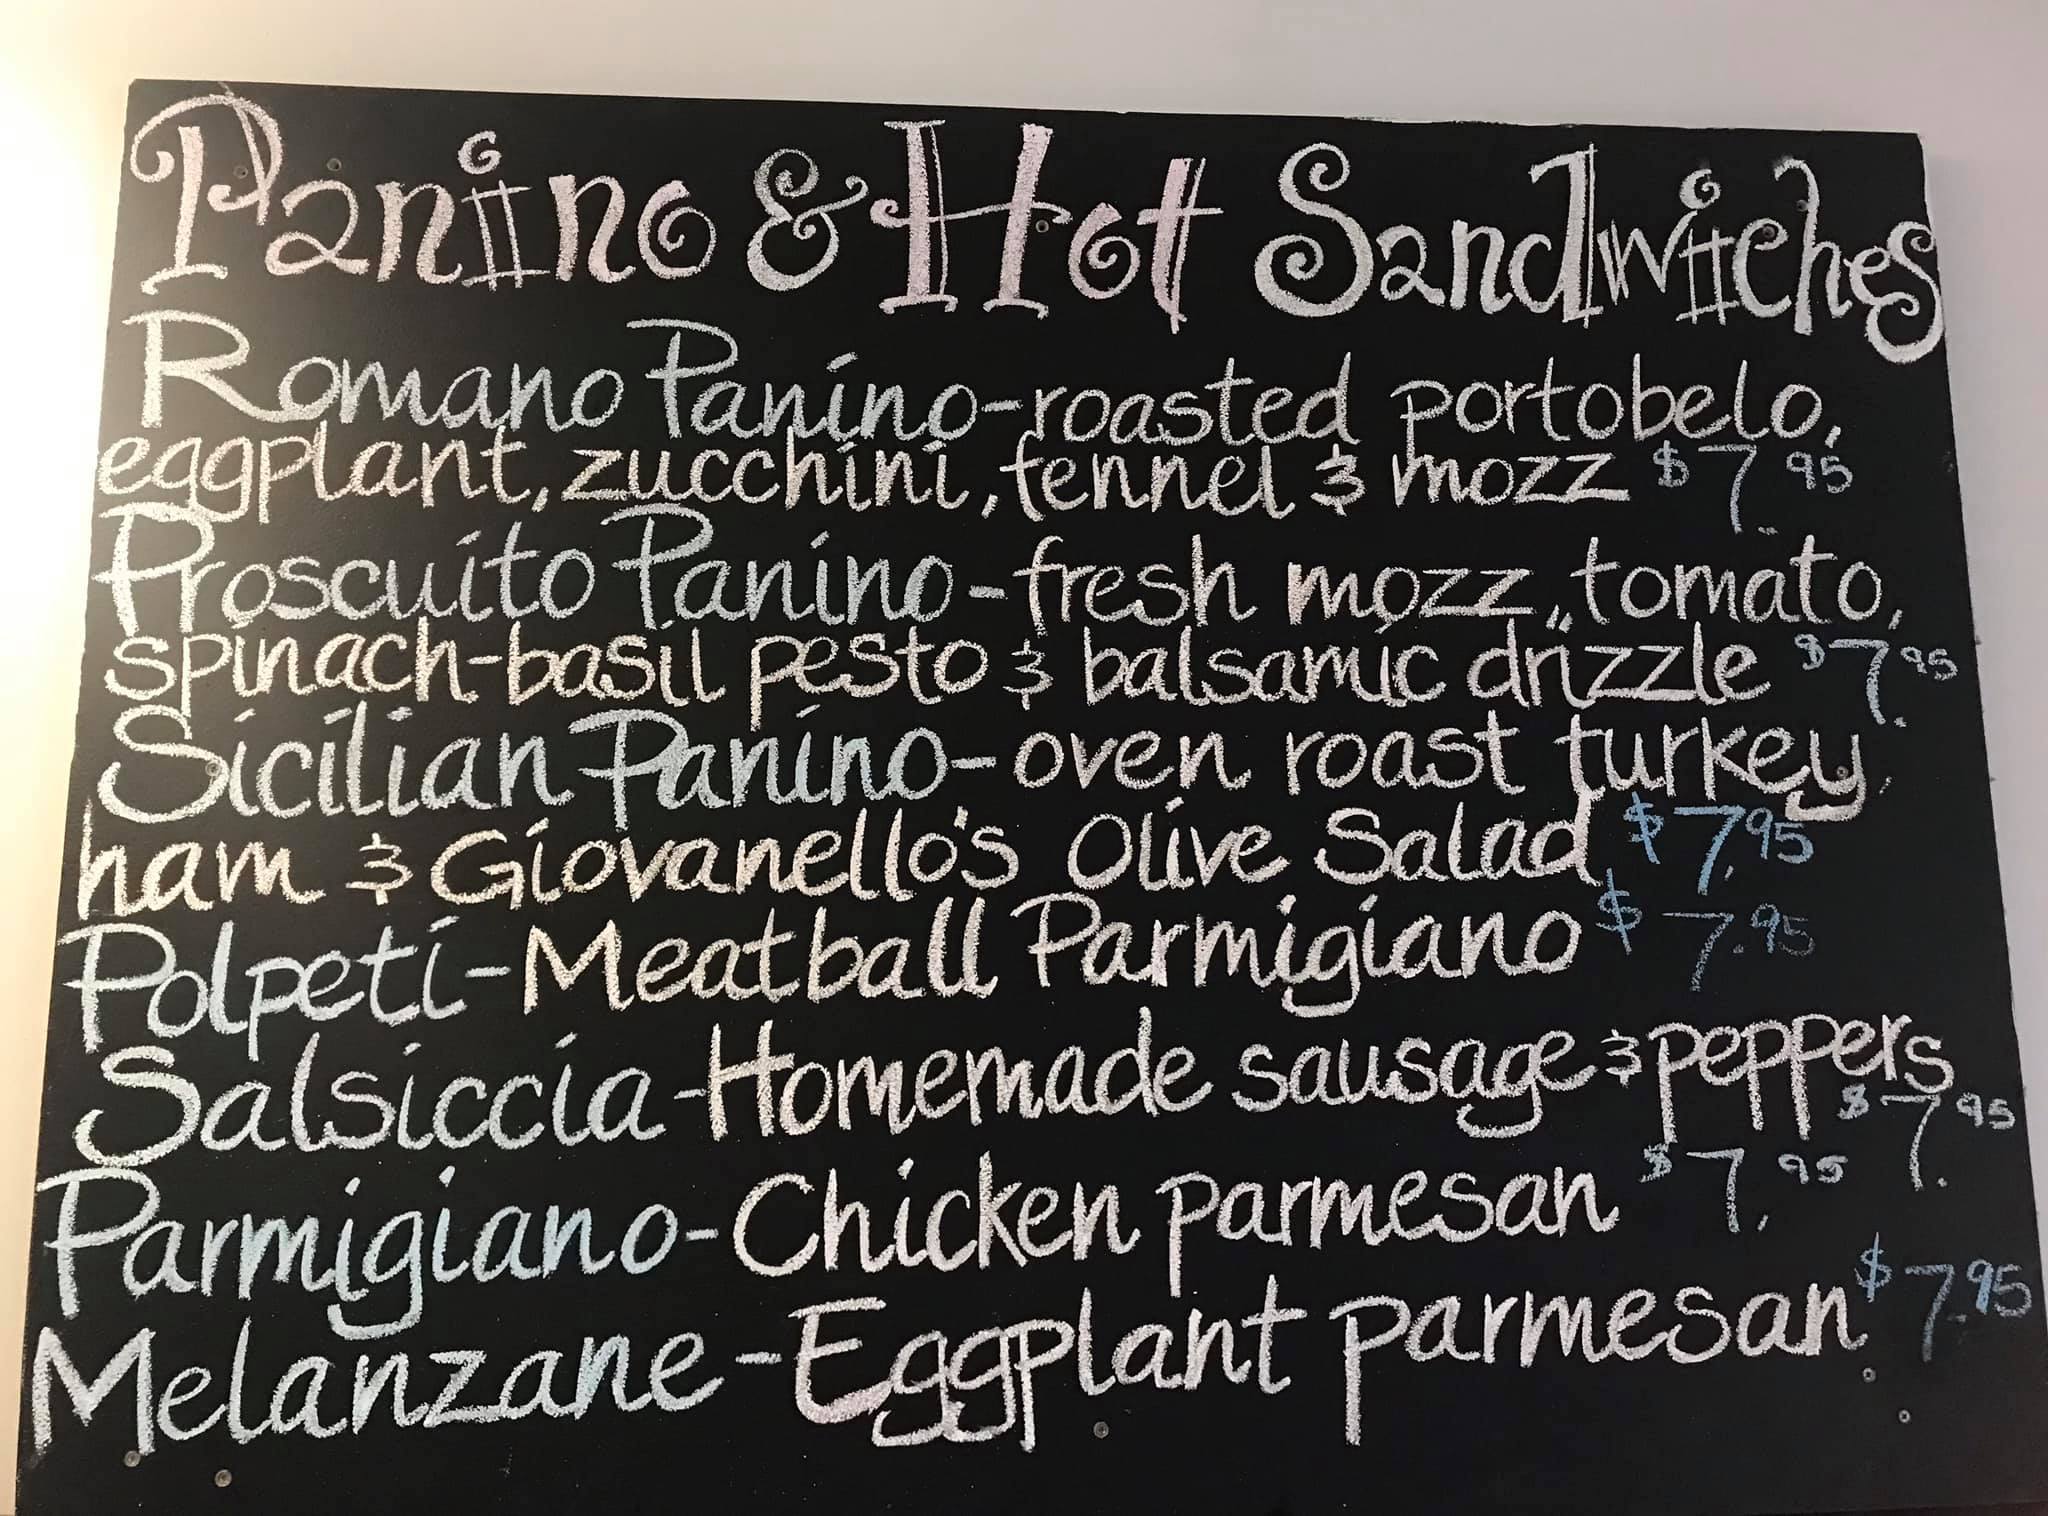 Panino & Hot Sandwiches
Romano Panino-roasted portobelo,
eggplant, zucchini, fennel & mozz $7.95
Proscuito Panino-fresh mozz, tomato,
spinach-basil pesto & balsamic drizzle $7.95
Sicilian Panino-oven roast turkey,
ham & Giovanello's Olive Salad $7.95
Polpeti-Meatball Parmigiano $7.95
Salsiccia-Homemade sausage & peppers $7.95
Parmigiano-Chicken parmesan $7.95
Melanzane-Eggplant parmesan $7.95